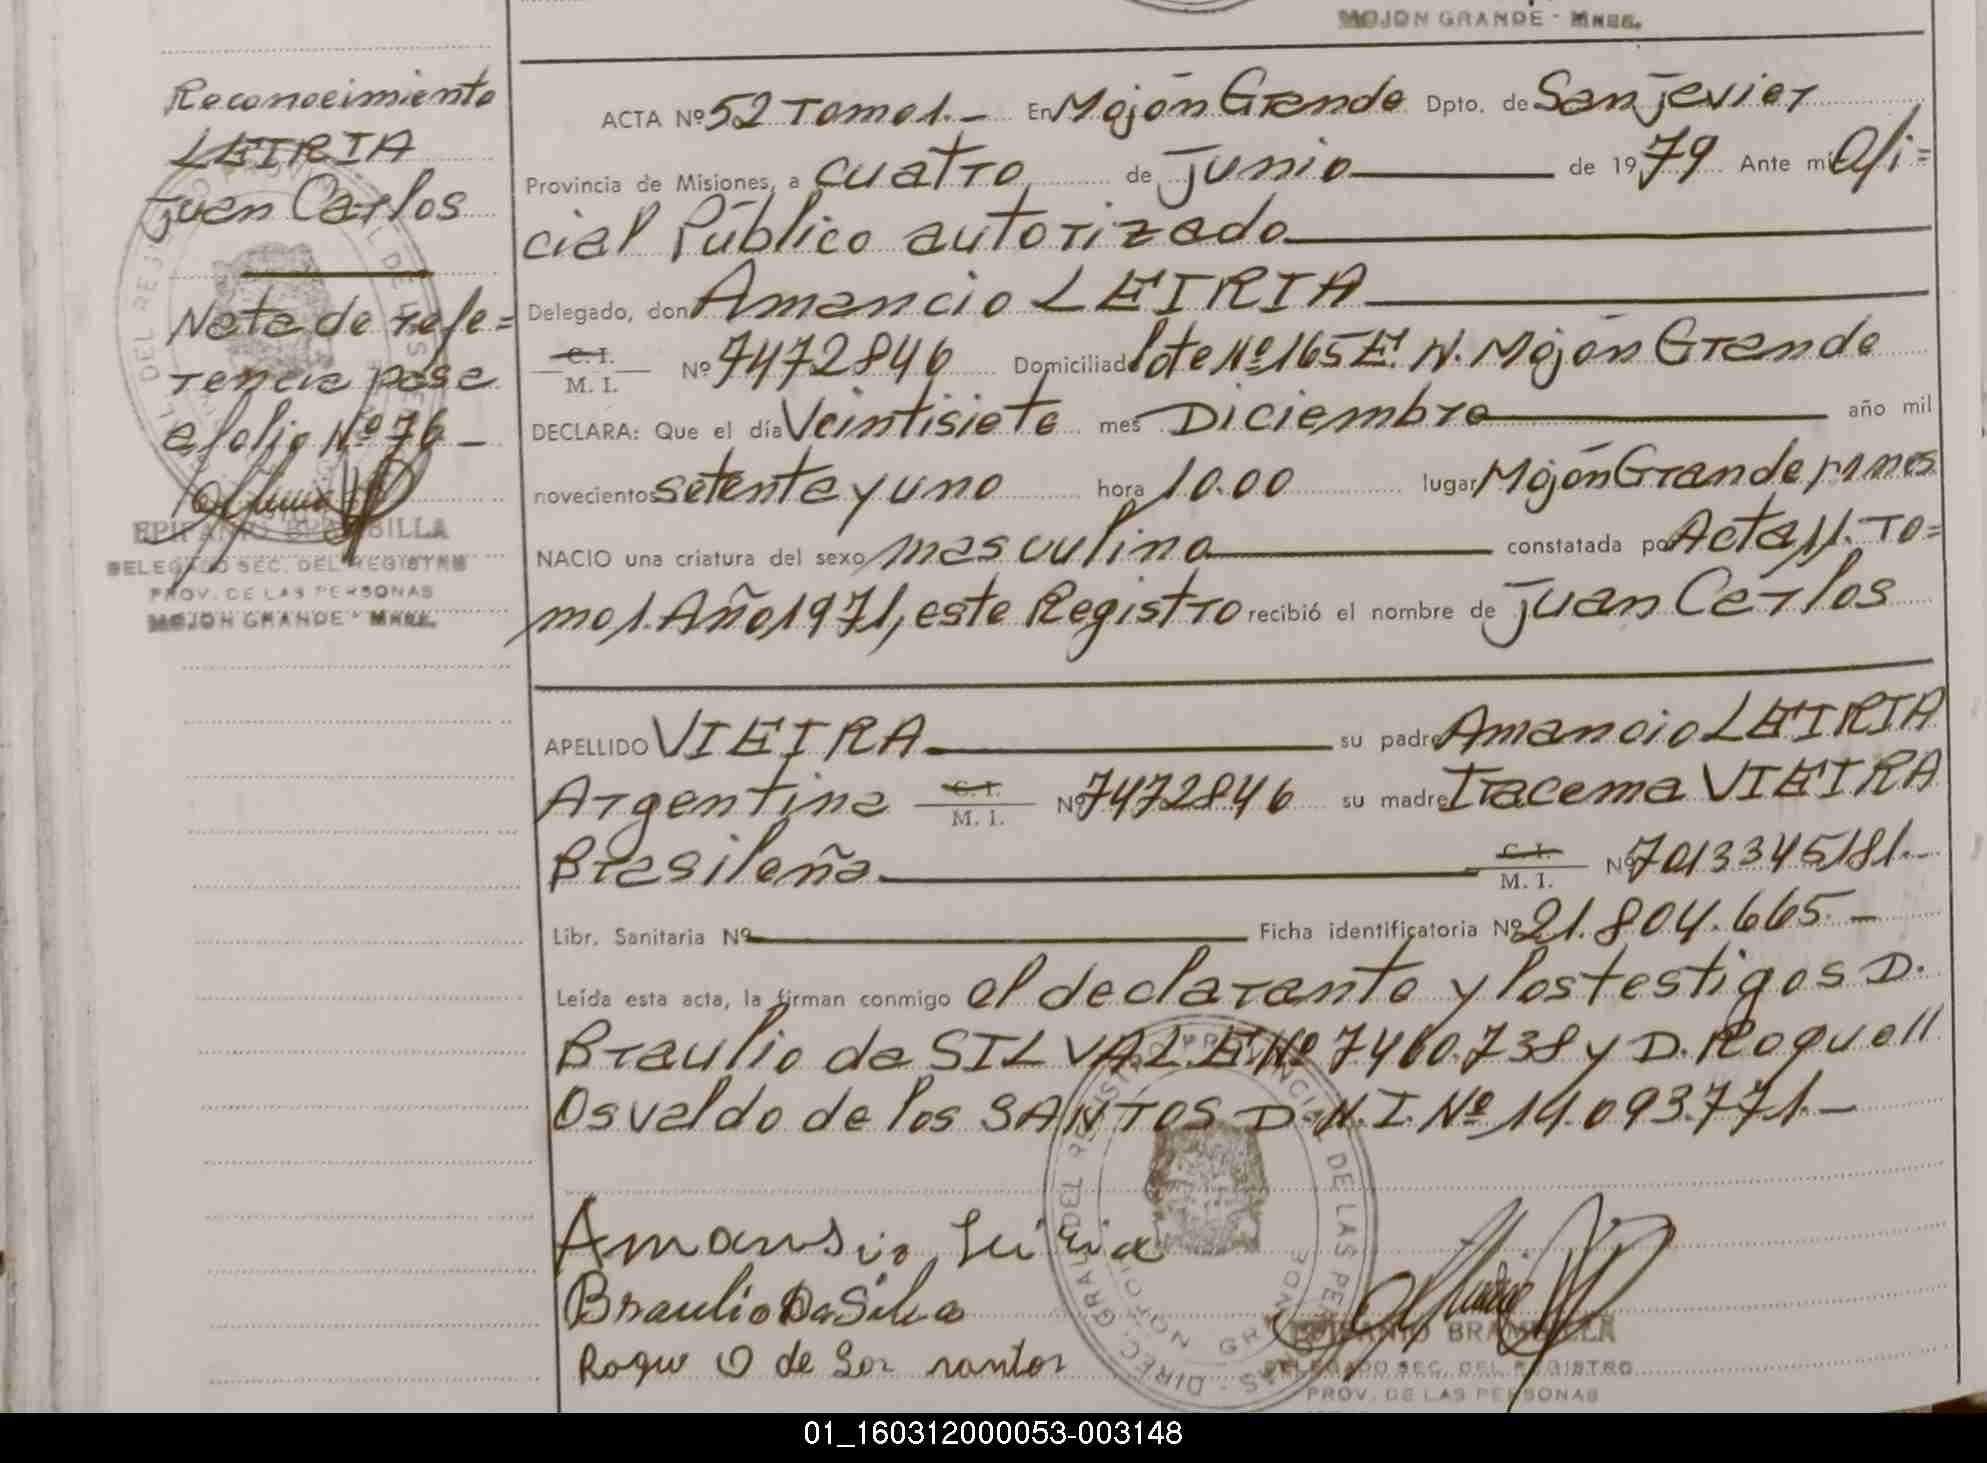 MOJON GRANDE - MNES.
Reconocimiento
LEIRIA
Juan Carlos
Nota de refe=
rencia pasa
al folio Nº 76 -
EPIFANIO BRAMBILLA
DELEGADO SEC. DEL REGISTRO
PROV. DE LAS PERSONAS
MOJON GRANDE - MNES.
ACTA Nº 52 Tomo 1.- En Mojón Grande Dpto. de San Javier
Provincia de Misiones, a cuatro de Junio de 1979 Ante mi Ofi=
cial Público autorizado
Delegado, don Amancio LEIRIA
C. I.
M. I. Nº 7472846 Domiciliado lote Nº 165 E. N. Mojón Grande
DECLARA: Que el día Veintisiete mes Diciembre año mil
novecientos setenta y uno hora 10.00 lugar Mojón Grande
NACIO una criatura del sexo masculino constatada por Acta 11. To=
mo 1. Año 1971, este Registro recibió el nombre de Juan Carlos
APELLIDO VIEIRA su padre Amancio LEIRIA
Argentina C. I.
M. I. Nº 7472846 su madre Iracema VIEIRA
Brasileña C. I.
M. I. Nº 7013345181.-
Libr. Sanitaria Nº Ficha identificatoria Nº 21.804.665.-
Leída esta acta, la firman conmigo el declarante y los testigos D.
Braulio da SILVA L.E. Nº 7460.738 y D. Roque
Osvaldo de los SANTOS D.N.I. Nº 14.093.771.-
Amansio Leiria
Braulio Da Silva
Roque O de Los santos
EPIFANIO BRAMBILLA
DELEGADO SEC. DEL REGISTRO
PROV. DE LAS PERSONAS
01_160312000053-003148